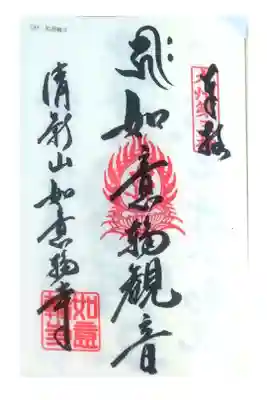 奉拝
如意輪観音
清影山如意輪寺
如意
輪寺